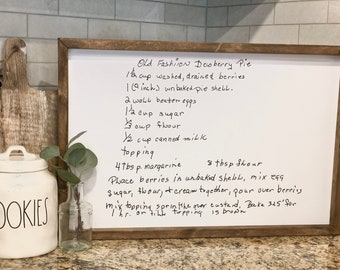 Old Fashion Dewberry Pie
1½ cup washed, drained berries
1 (9 inch) unbaked pie shell.
2 well beaten eggs
1½ cup sugar
⅓ cup flour
½ cup canned milk
topping
4 tbsp. margarine 8 tbsp flour
Place berries in unbaked shell, mix egg
sugar, flour, & cream together, pour over berries
mix topping sprinkle over custard, Bake 325° for
1 hr. or till topping is brown
OOKIES